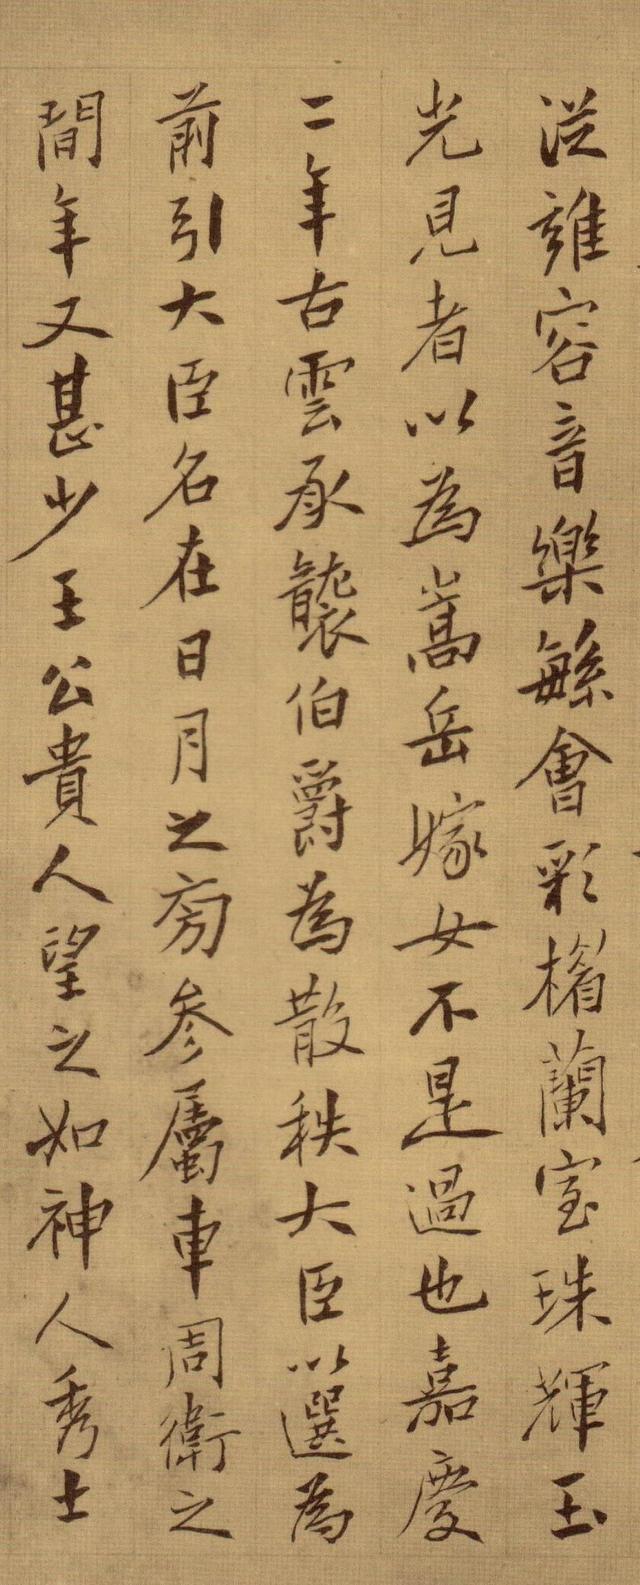 從雖容音樂繇會彩楣蘭室珠輝玉
光見者以為嵩岳嫁女不是過也嘉慶
二年古雲承襲伯爵為散秩大臣以選為
前引大臣名在日月之旁参屬車周衛之
間年又甚少王公貴人望之如神人秀士